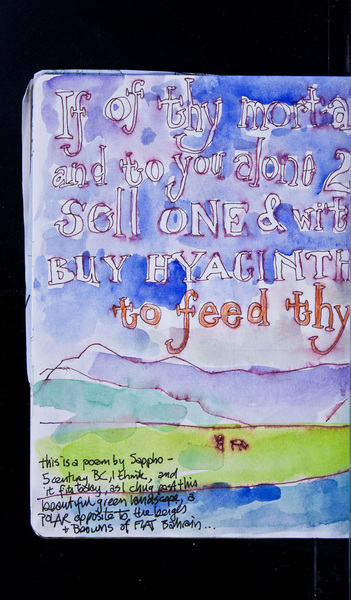 If of thy morta
and to you alone 2
Sell ONE & wit
BUY HYACINTH
to feed thy
this is a poem by Sappho -
5 century BC, I think, and
it fits today, as I chug past this
beautiful green landscape, a
POLAR opposite to the beiges
+ Browns of FLAT Bahrain...